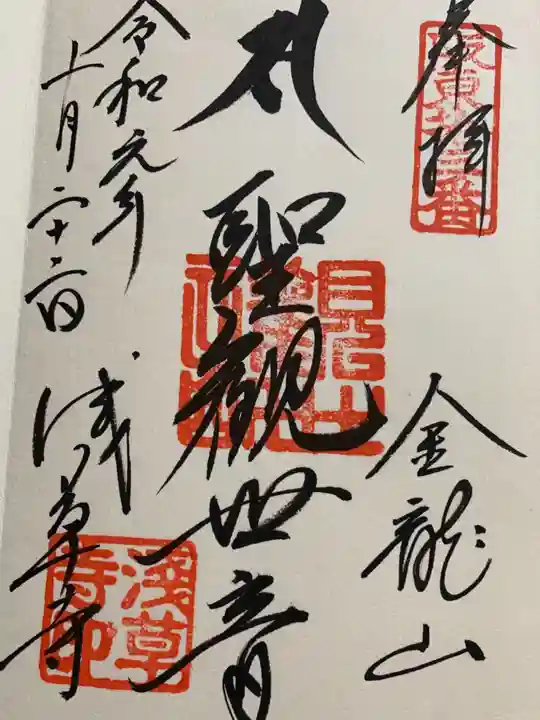 奉拝
坂東拾三番
金龍山
聖観世音
令和元年
十月二十六日
浅草寺
淺草寺印